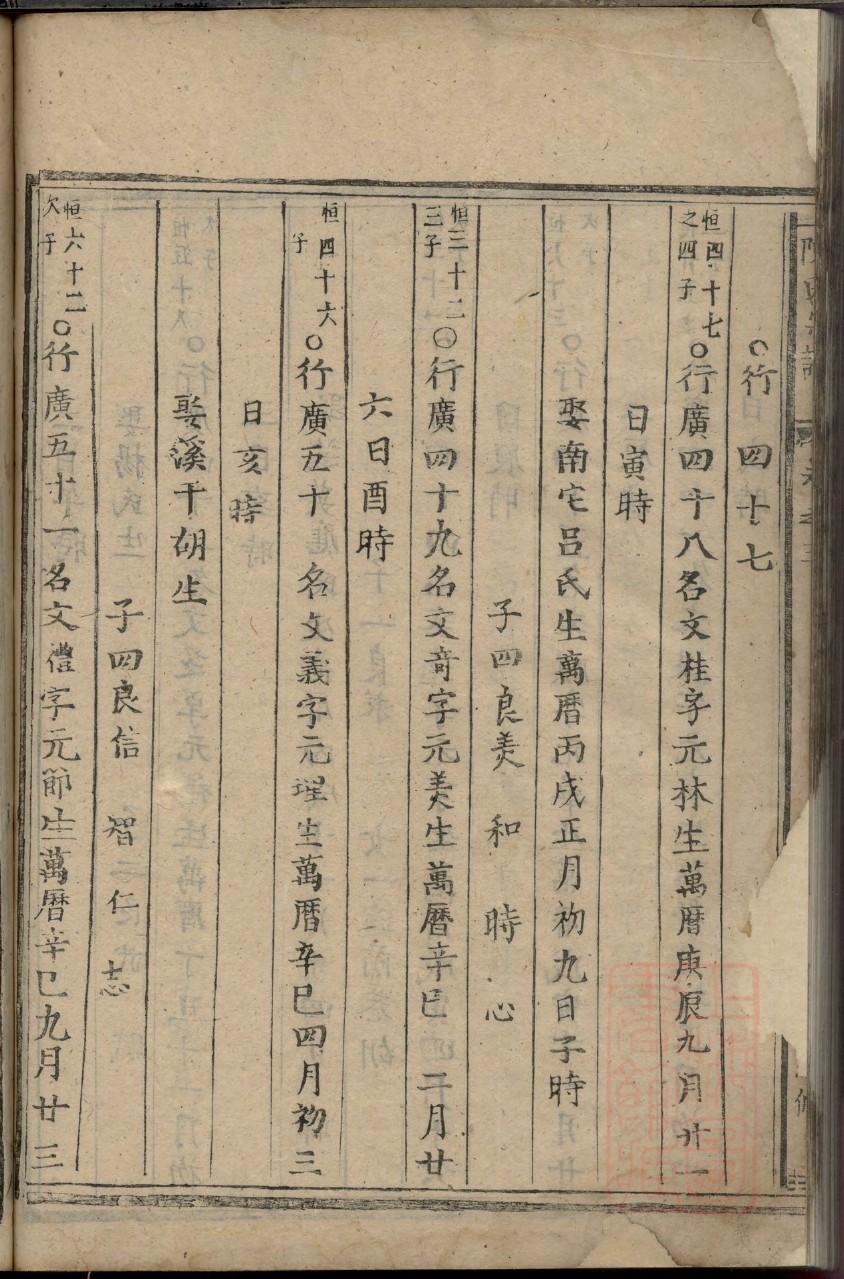 ○行四十七
恒四十七之四子○行廣四十八名文桂字元林生萬曆庚辰九月廿一
日寅時
娶南宅吕氏生萬曆丙戌正月初九日子時
子四良羙 和 時 心
恒三十二三子○行廣四十九名文竒字元羙生萬曆辛巳二月廿
六日酉時
恒四十六子○行廣五十名文義字元理生萬曆辛巳四月初三
日亥時
娶溪干胡生
子四良信 智 仁 志
恒六十二次子○行廣五十一名文禮字元節生萬曆辛巳九月廿三